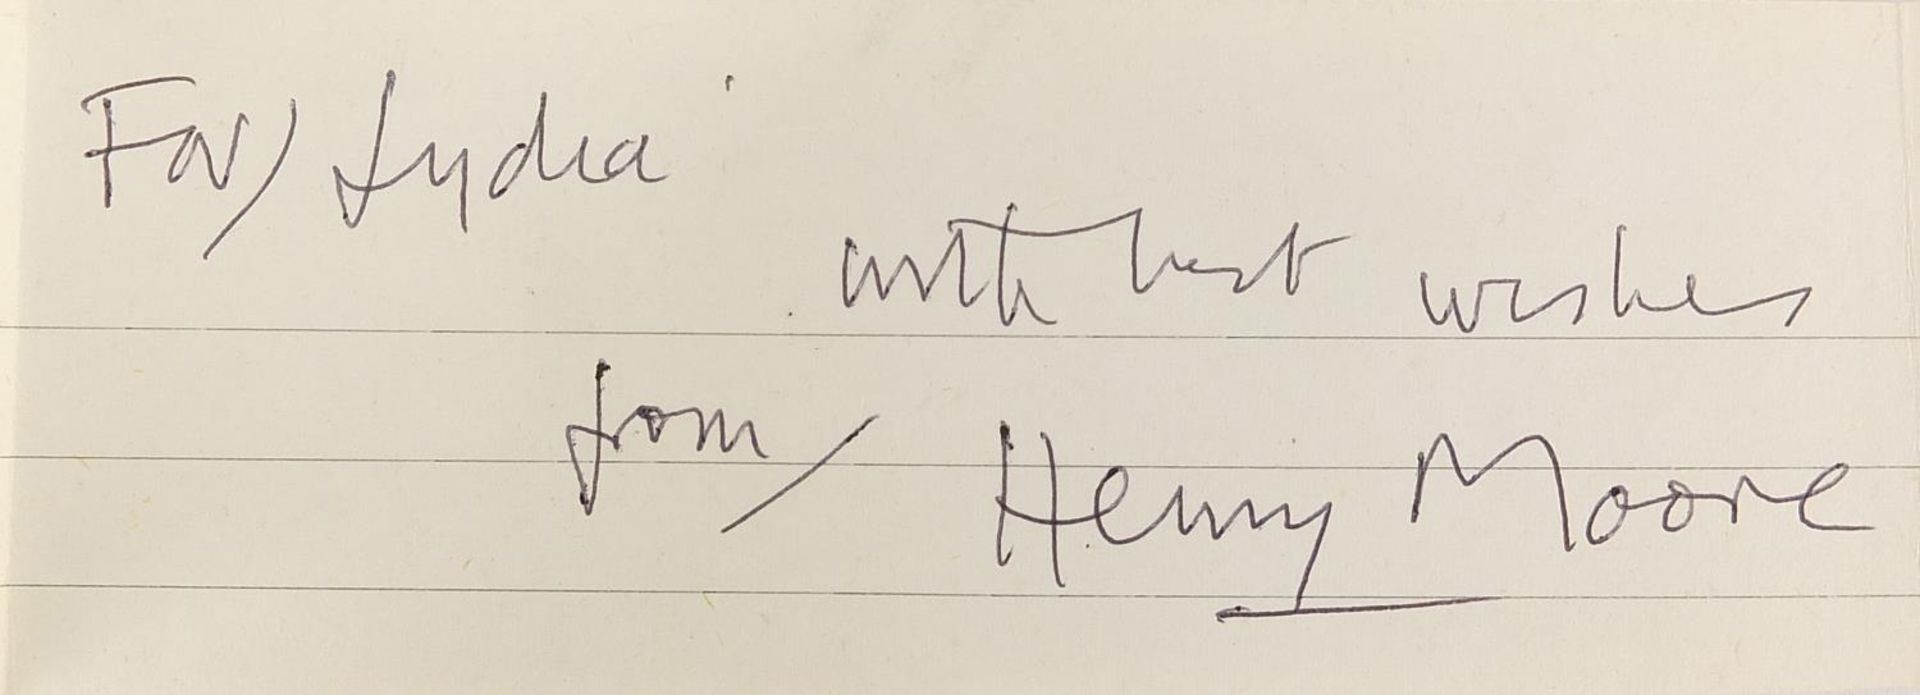 For/ Lydia
with best wishes
from/ Henry Moore